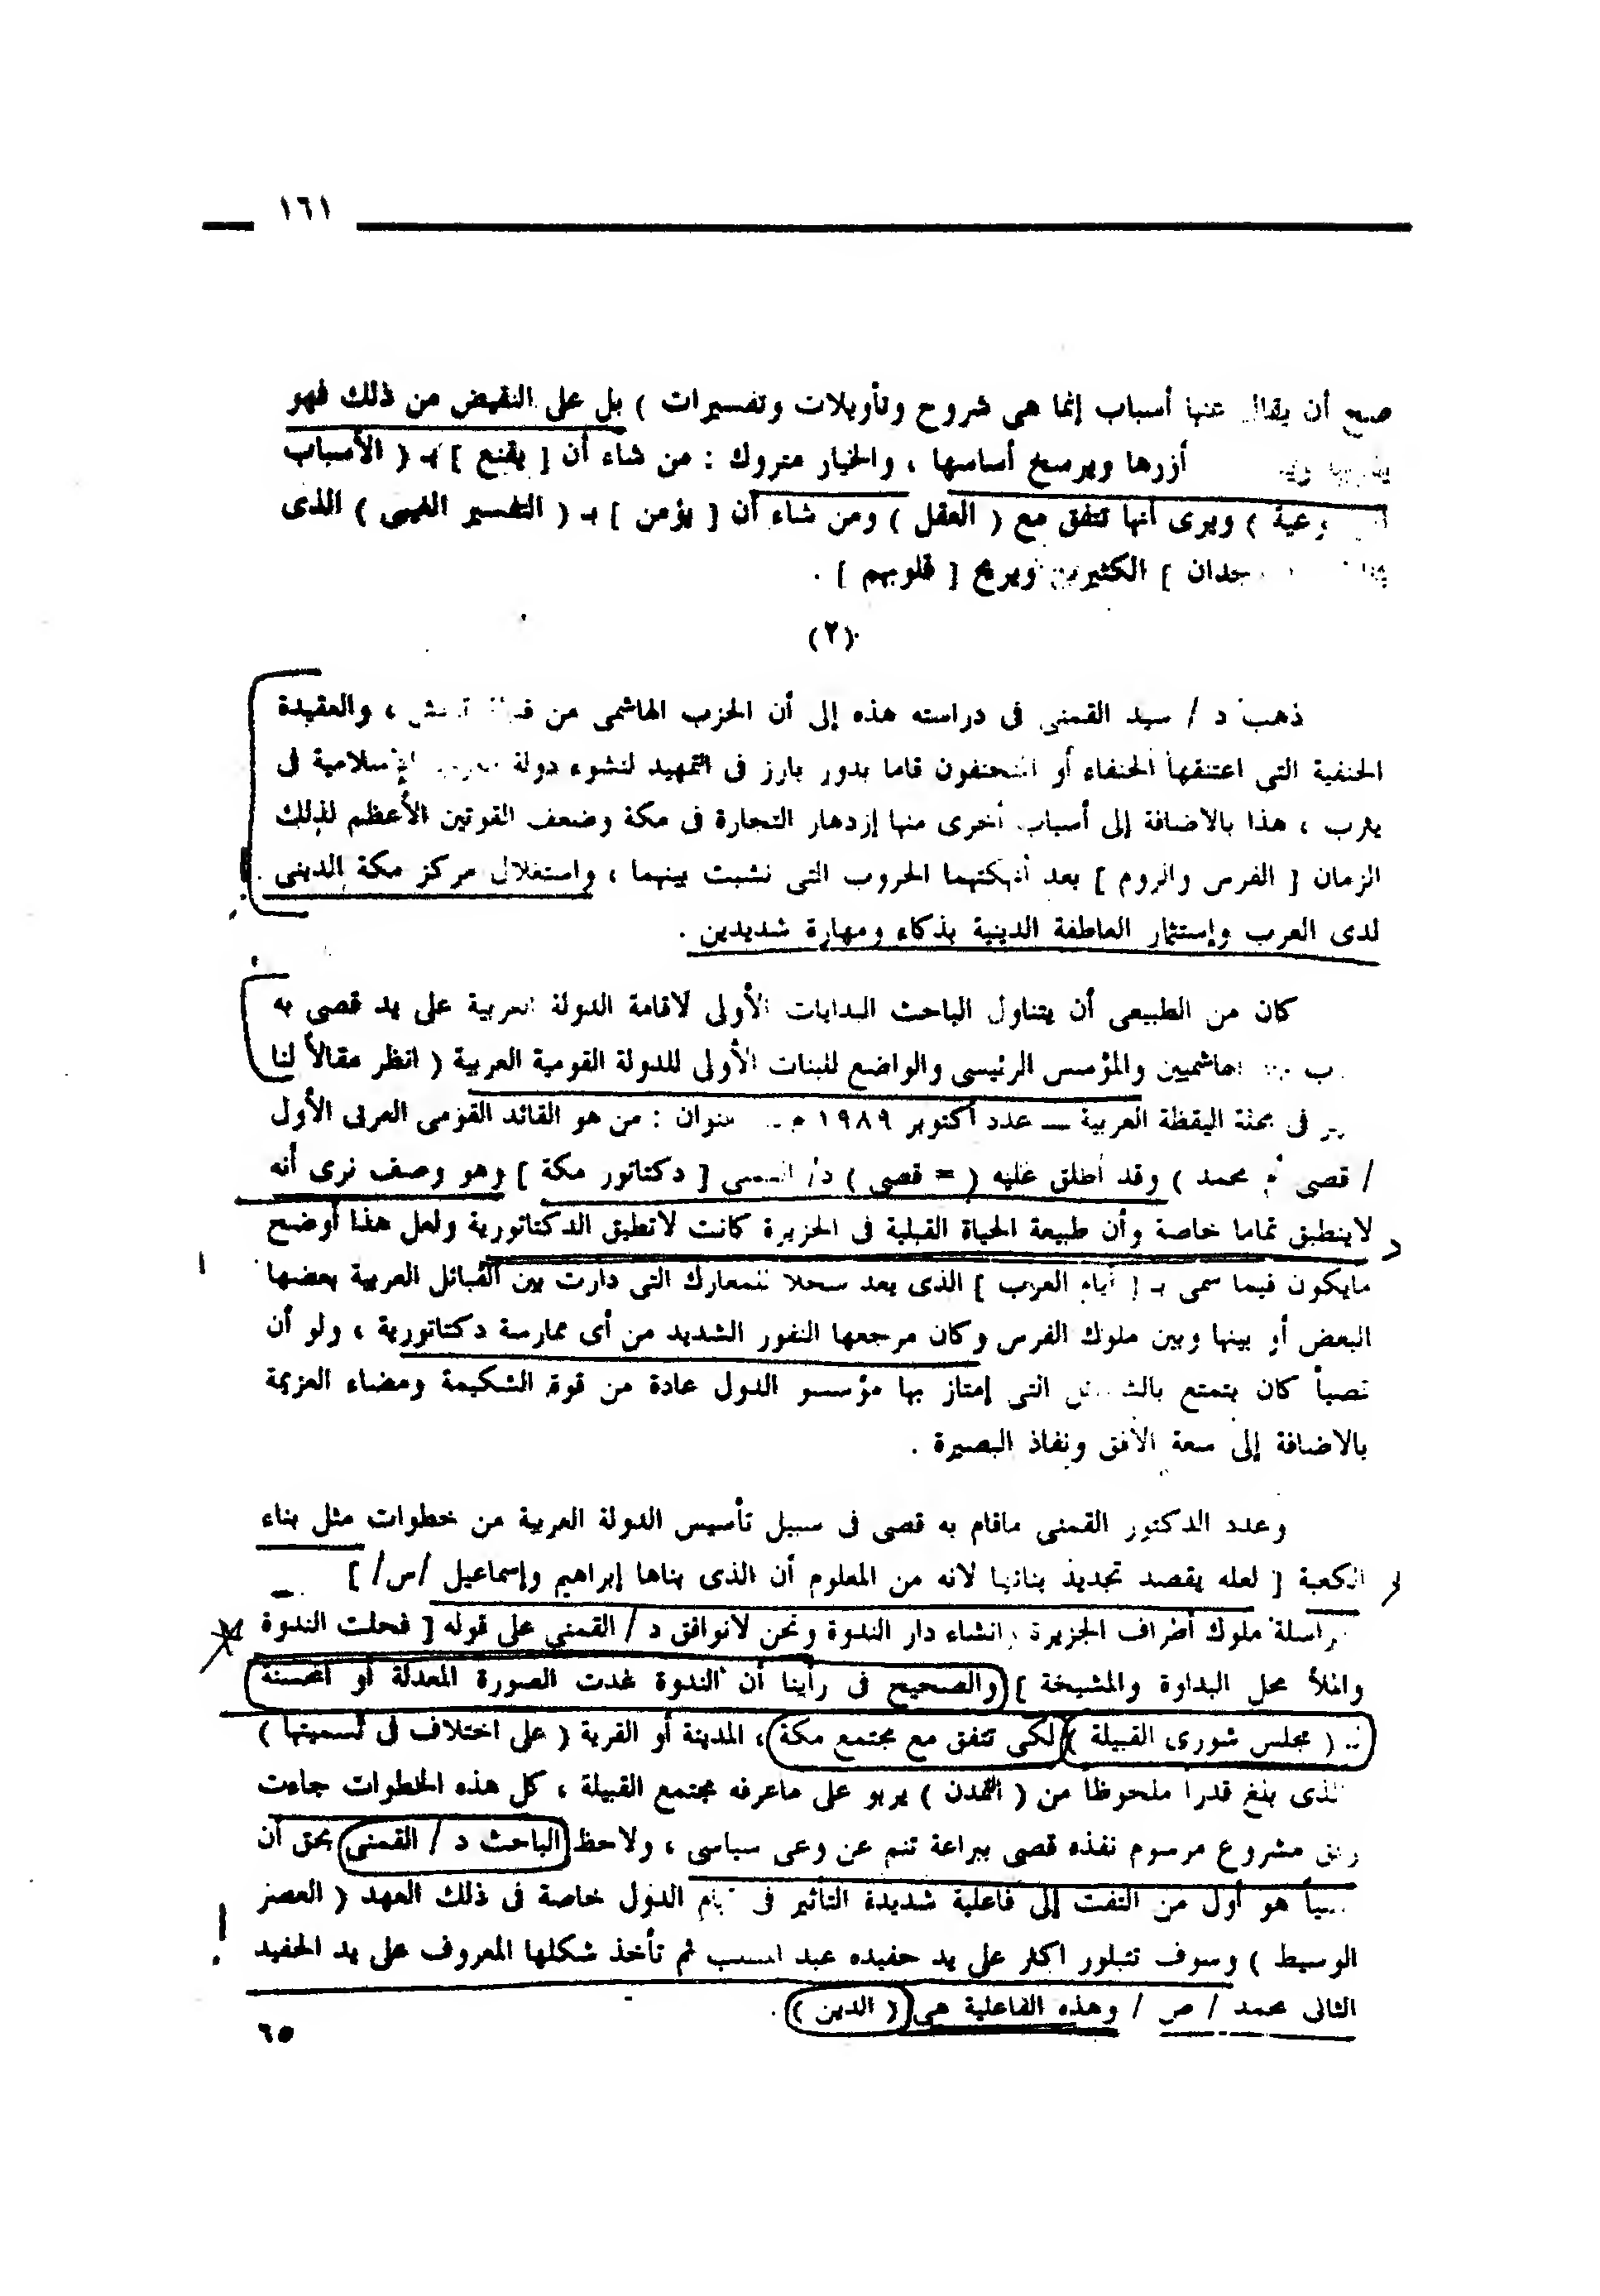 ١٦١
صح أن يقال عنها أسباب إنما هى شروح وتأويلات وتفسيرات ) بل على النقيض من ذلك فهو
أزرها ويرسخ أساسها ، والخيار متروك : من شاء أن [ يقنع ] بـ ( الأسباب
ويرى أنها تتفق مع ( العقل ) ومن شاء أن [ يؤمن ] بـ ( التفسير الغيبى ) الذى
الكثيرين ويريح [ قلوبهم ] .
(٢)
ذهب د / سيد القمنى فى دراسته هذه إلى أن الحزب الهاشمى من ، والعقيدة
الحنفية التى اعتنقها الحنفاء أو المتحنفون قاما بدور بارز فى التمهيد لنشوء دولة الإسلامية فى
يثرب ، هذا بالاضافة إلى أسباب أخرى منها إزدهار التجارة فى مكة وضعف القوتين الأعظم لذلك
الزمان [ الفرس والروم ] بعد أنهكتهما الحروب التى نشبت بينهما ، واستغلال مركز مكة الدينى
لدى العرب وإستثمار العاطفة الدينية بذكاء ومهارة شديدين .
كان من الطبيعى أن يتناول الباحث البدايات الأولى لاقامة الدولة العربية على يد قصى به
الهاشميين والمؤسس الرئيسى والواضع للبنات الأولى للدولة القومية العربية ( انظر مقالاً لنا
فى مجلة اليقظة العربية ــ عدد أكتوبر ١٩٨٩ م : من هو القائد القومى العربى الأول
/ قصى أم محمد ) وقد أطلق عليه ( = قصى ) د/ القمنى [ دكتاتور مكة ] وهو وصف نرى أنه
لاينطبق تماما خاصة وأن طبيعة الحياة القبلية فى الجزيرة كانت لاتطيق الدكتاتورية ولعل هذا أوضح
مايكون فيما سمى بـ [ أيام العرب ] الذى يعد سجلا للمعارك التى دارت بين القبائل العربية بعضها
البعض أو بينها وبين ملوك الفرس وكان مرجعها النفور الشديد من أى ممارسة دكتاتورية ، ولو أن
قصياً كان يتمتع التى إمتاز بها مؤسسو الدول عادة من قوة الشكيمة ومضاء العزيمة
بالاضافة إلى سعة الأفق ونفاذ البصيرة .
وعدد الدكتور القمنى ماقام به قصى فى سبيل تأسيس الدولة العربية من خطوات مثل بناء
الكعبة [ لعله يقصد تجديد بنائها لانه من المعلوم أن الذى بناها إبراهيم وإسماعيل /س/ ]
ملوك أطراف الجزيرة وانشاء دار الندوة ونحن لانوافق د / القمنى على قوله [ فحلت الندوة
والملأ محل البداوة والمشيخة ] والصحيح فى رأينا أن الندوة غدت الصورة المعدلة أو المحسنة
( مجلس شورى القبيلة ) لكى تتفق مع مجتمع مكة ، المدينة أو القرية ( على اختلاف فى تسميتها )
الذى بلغ قدرا ملحوظا من ( التمدن ) يربو على ماعرفه مجتمع القبيلة ، كل هذه الخطوات جاءت
وفق مشروع مرسوم نفذه قصى ببراعة تنم عن وعى سياسى ، ولاحظ الباحث د / القمنى بحق أن
هو أول من التفت إلى فاعلية شديدة التأثير فى قيام الدول خاصة فى ذلك العهد ( العصر
الوسيط ) وسوف تتبلور اكثر على يد حفيده عبد المطلب ثم تأخذ شكلها المعروف على يد الحفيد
الثانى محمد / ص / وهذه الفاعلية هى ( الدين ) .
٦٥